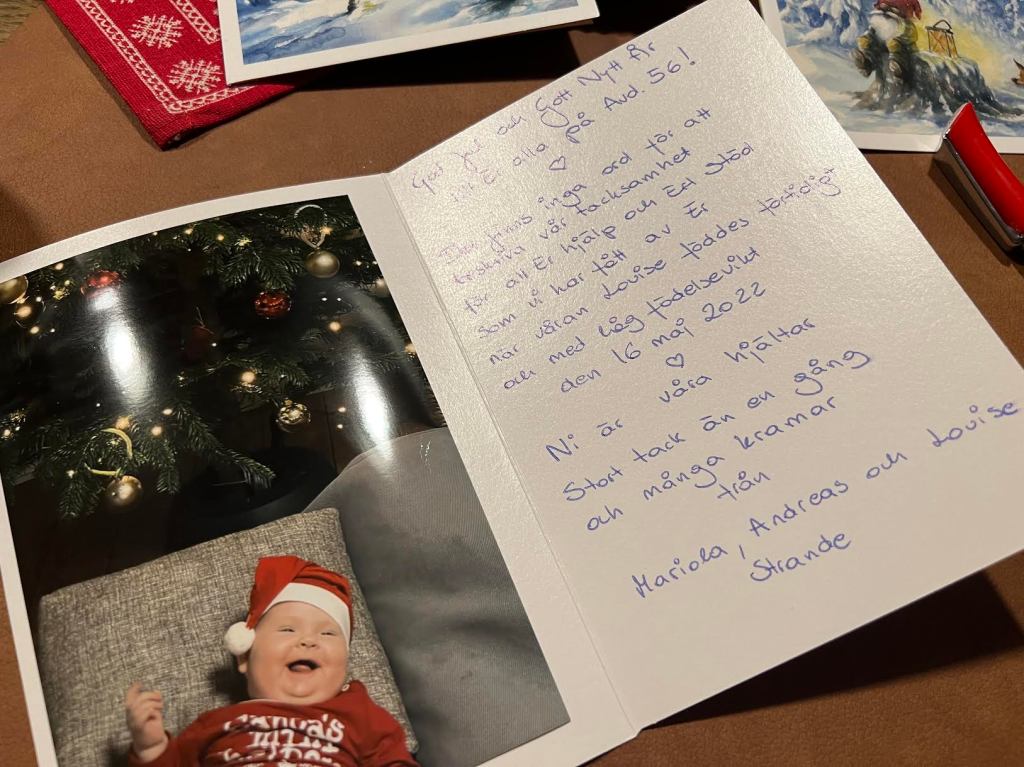 God Jul och Gott Nytt År
till Er alla på Avd. 56!
♡
Det finns inga ord för att
beskriva vår tacksamhet
för all Er hjälp och Ert stöd
som vi har fått av Er
när våran Louise föddes förtidigt
och med låg födelsevikt
den 16 maj 2022
♡
Ni är våra hjältar
Stort tack än en gång
och många kramar
från
Mariola, Andreas och Louise
Strande